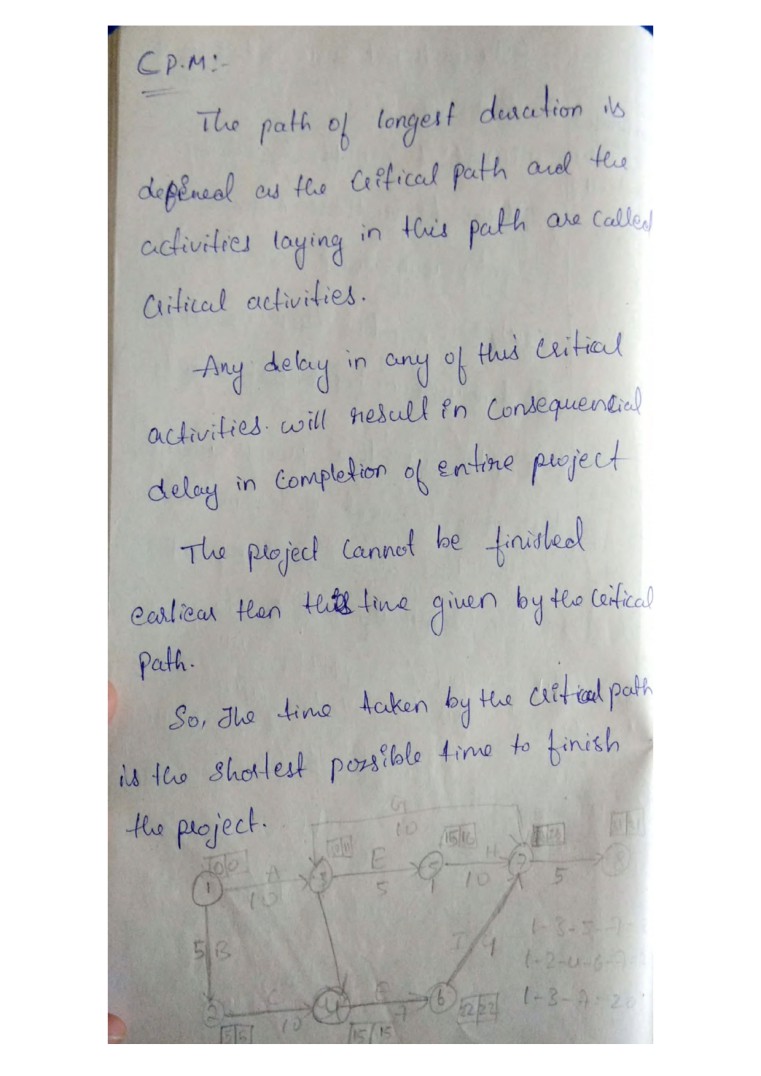 C P.M:-
The path of longest duration is
defined as the Critical path and the
activities laying in this path are called
Critical activities.
Any delay in any of this critical
activities. will result in Consequencial
delay in Completion of entire project
The project Cannot be finished
earliear then this time given by the Critical
Path.
So, The time taken by the critical path
is the shortest possible time to finish
the project.
G
10
15 16
0 0
A
E
H
1
3
5
7
8
10
5
10
5
5 B
I 4
1-3-5-7-
1-2-4-6-7-
2
4
6
1-3-7-20
10
7
22 22
5 5
15 15